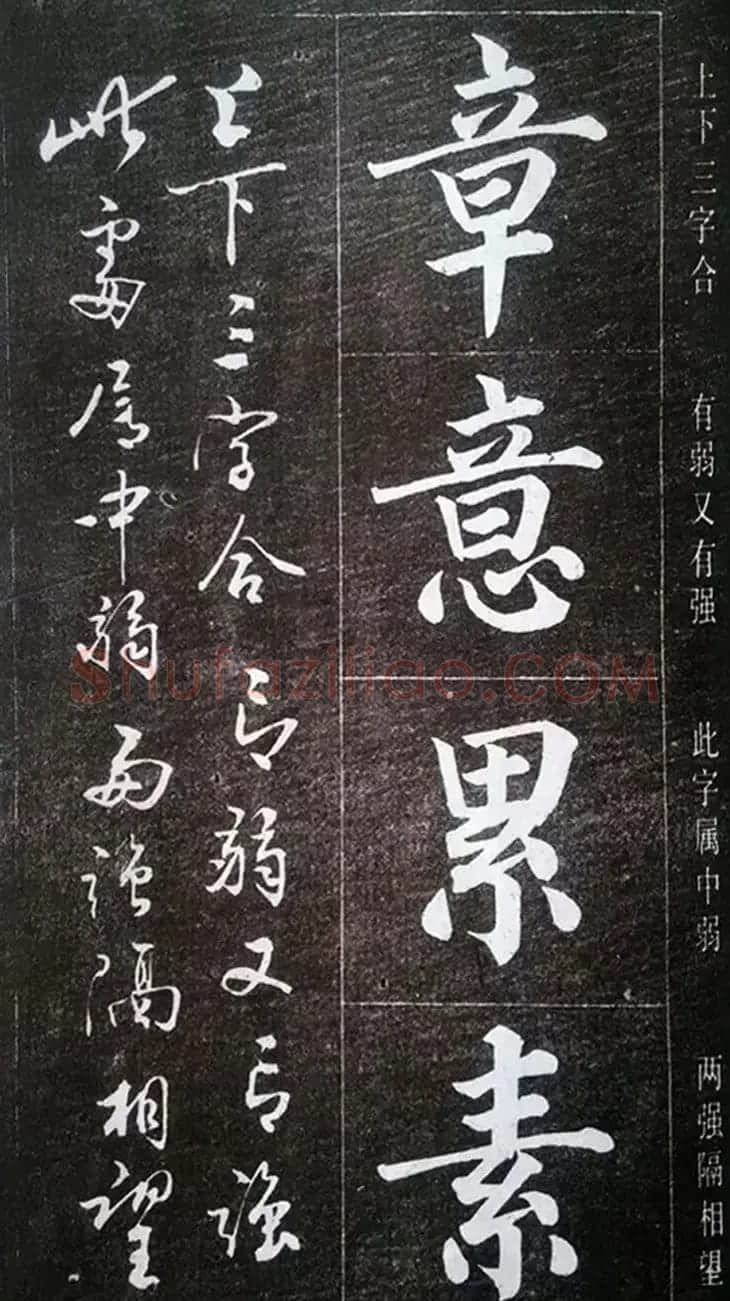 上下三字合 有弱又有强 此字属中弱 两强隔相望
章意累素
上下三字合 有弱又有强
此處属中弱 两强隔相望
Shufaziliao.COM